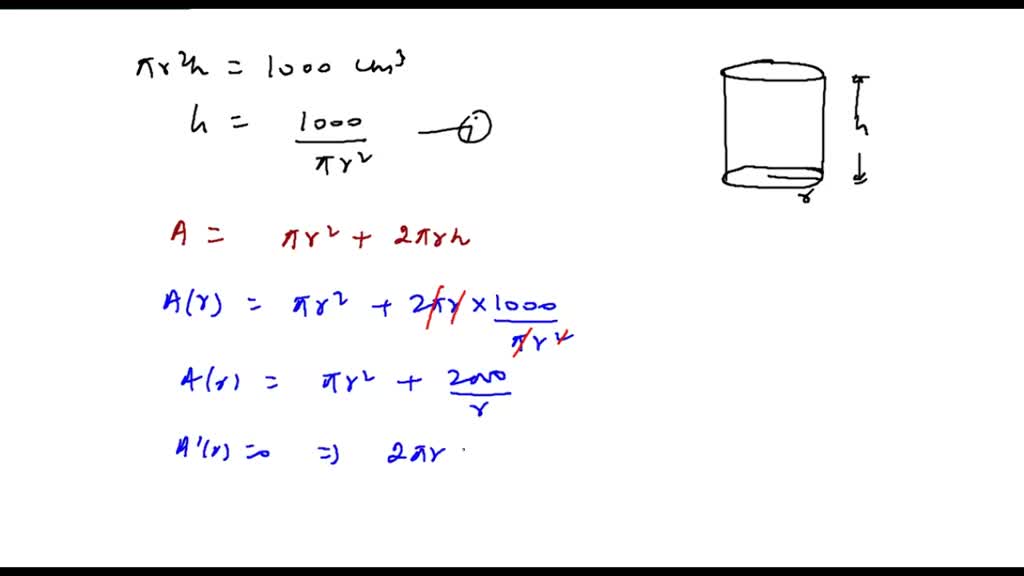 πr²h = 1000 cm³
h = 1000/πr² — ⓘ
h
r
A = πr² + 2πrh
A(r) = πr² + 2πr × 1000/πr²
A(r) = πr² + 2000/r
A'(r) = 0 ⇒ 2πr